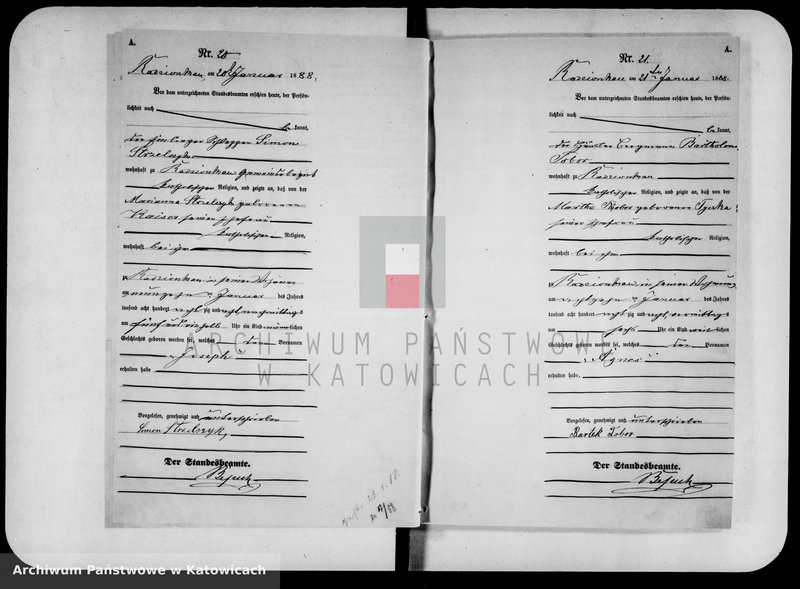 A.
Nr. 20
Radzionkau am 20ten Januar 1888.
Vor dem unterzeichneten Standesbeamten erschien heute, der Persön-
lichkeit nach
be kannt,
der Simon
Strzelczyk
wohnhaft zu Radzionkau
katholischer Religion, und zeigte an, daß von der
Marianna Strzelczyk geborenen
Kaiser seiner Ehefrau
katholischer Religion,
wohnhaft bei ihm
zu Radzionkau in seiner Wohnung
am neunzehn ten Januar des Jahres
tausend acht hundert acht zig und acht, vormittags
um fünf und einhalb Uhr ein Kind männlichen
Geschlechts geboren worden sei, welches den Vornamen
"Joseph"
erhalten habe
Vorgelesen, genehmigt und unterschrieben
Simon Strzelczyk
Der Standesbeamte.
A.
Nr. 21.
Radzionkau am 21ten Januar 1888.
Vor dem unterzeichneten Standesbeamten erschien heute, der Persön-
lichkeit nach
be kannt,
der Häusler Bergmann Bartholom
Tobor
wohnhaft zu Radzionkau
katholischer Religion, und zeigte an, daß von der
Martha Tobor geborenen
seiner Ehefrau
katholischer Religion,
wohnhaft bei ihm
zu Radzionkau in seiner Wohnung
am achtzehn ten Januar des Jahres
tausend acht hundert acht zig und acht, vormittags
um sechs Uhr ein Kind weib lichen
Geschlechts geboren worden sei, welches den Vornamen
"Agnes"
erhalten habe.
Vorgelesen, genehmigt und unterschrieben
Bartek Tobor
Der Standesbeamte.
ARCHIWUM PAŃSTWOWE
W KATOWICACH
Archiwum Państwowe w Katowicach